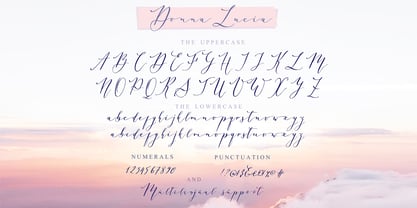 Donna Lucia
THE UPPERCASE
ABCDEFGHIJKLM
NOPQRSTUVWXYZ
THE LOWERCASE
abcdefghijklmnopqrstuvwxyz
abcdefghijklmnopqrstuvwxyz
NUMERALS PUNCTUATION
1234567890
AND
Multilingual support